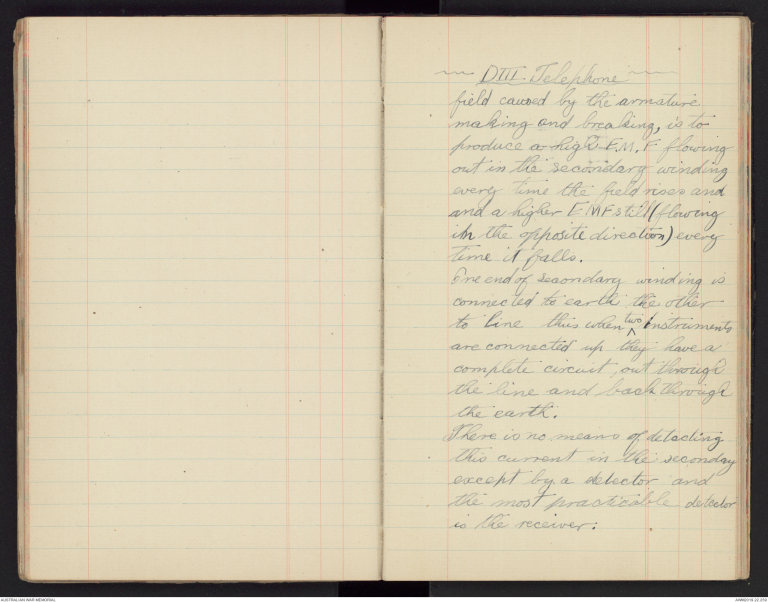 DIII Telephone
field caused by the armature
making and breaking, is to
produce a high E.M.F flowing
out in the secondary winding
every time the field rises and
and a higher EMF still (flowing
in the opposite direction) every
time it falls.
One end of secondary winding is
connected to earth the other
to line this when two instruments
are connected up they have a
complete circuit, out through
the line and back through
the earth.
There is no means of detecting
this current in the seconday
except by a detector and
the most practicable detector
is the receiver.
AUSTRALIAN WAR MEMORIAL